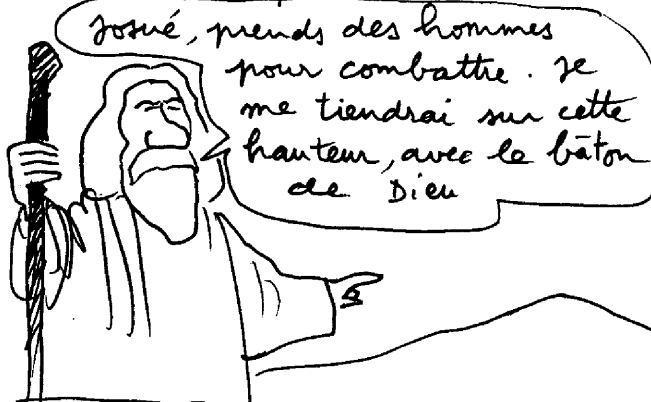 Josué, prends des hommes
pour combattre. Je
me tiendrai sur cette
hauteur, avec le bâton
de Dieu